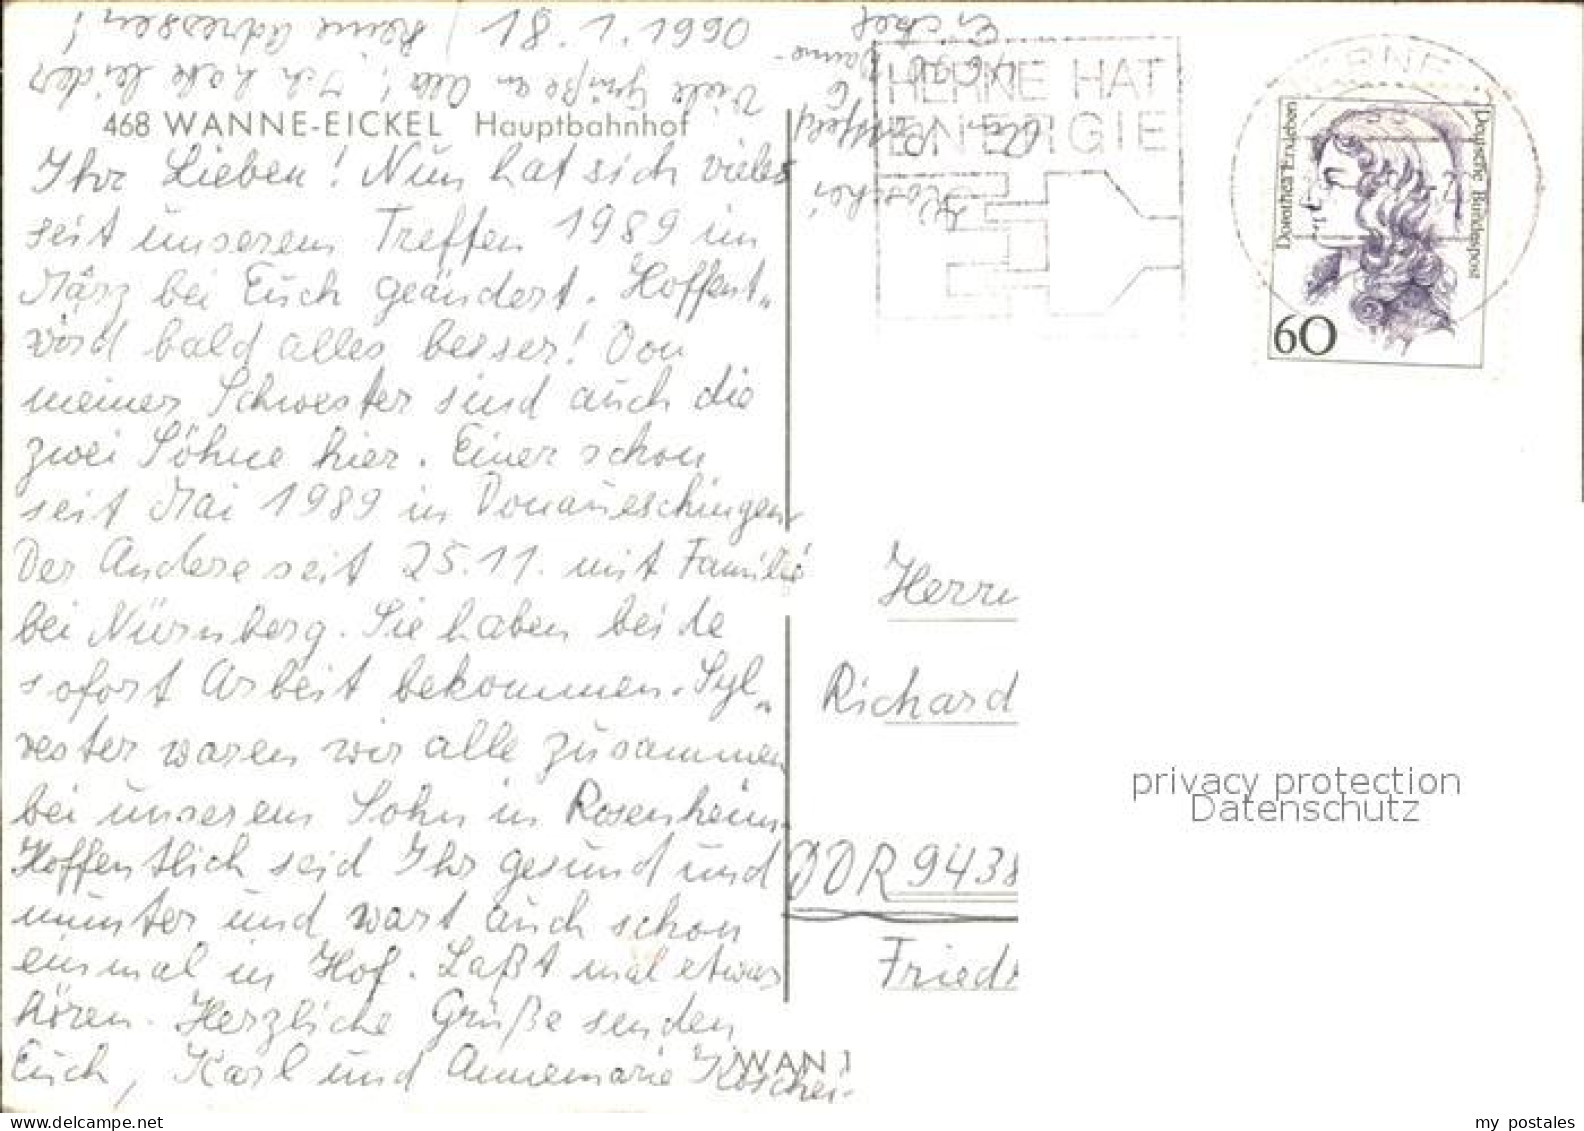 18.1.1990
Viele Grüße an Alle! Ich habe leider
keine Adressen!
468 WANNE-EICKEL Hauptbahnhof
Ihr Lieben! Nun hat sich vieles
seit unserem Treffen 1989 im
März bei Euch geändert. Hoffent„
wird bald alles besser! Von
meiner Schwester sind auch die
zwei Söhne hier. Einer schon
seit Mai 1989 in Donaueschingen
Der Andere seit 25.11. mit Familie
bei Nürnberg. Sie haben beide
sofort Arbeit bekommen. Syl„
vester waren wir alle zusammen
bei unserem Sohn in Rosenheim.
Hoffentlich seid Ihr gesund und
munter und wart auch schon
einmal in Hof. Laßt mal etwas
hören. Herzliche Grüße senden
Euch, Karl und Annemarie Koschei.
WAN 1
Koschei
Wanne-
Eickel
HERNE HAT
ENERGIE
HERNE 1
Dorothea Erxleben
Deutsche Bundespost
60
Herrn
Richard
DDR 9438
Friedr
privacy protection
Datenschutz
my postales